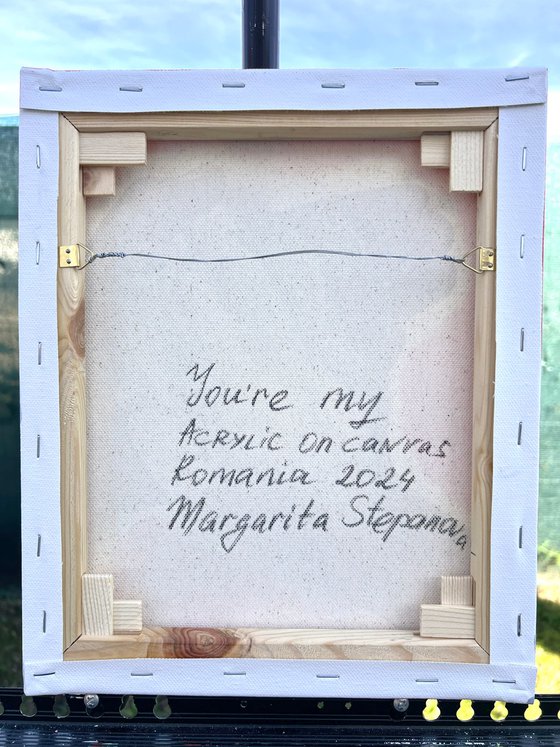 You're my
ACRYLIC on canvas
Romania 2024
Margarita Stepanova